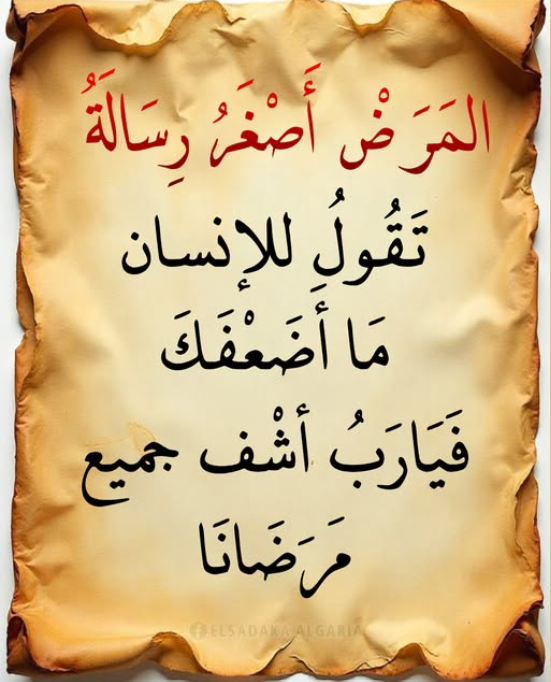 المَرَضْ أَصْغَرُ رِسَالَةُ
تَقُولُ للإِنسان
مَا أَضَعْفَكَ
فَيَارَبُ أشْف جميع
مَرَضَانَا
ELSADAKA ALGARIA